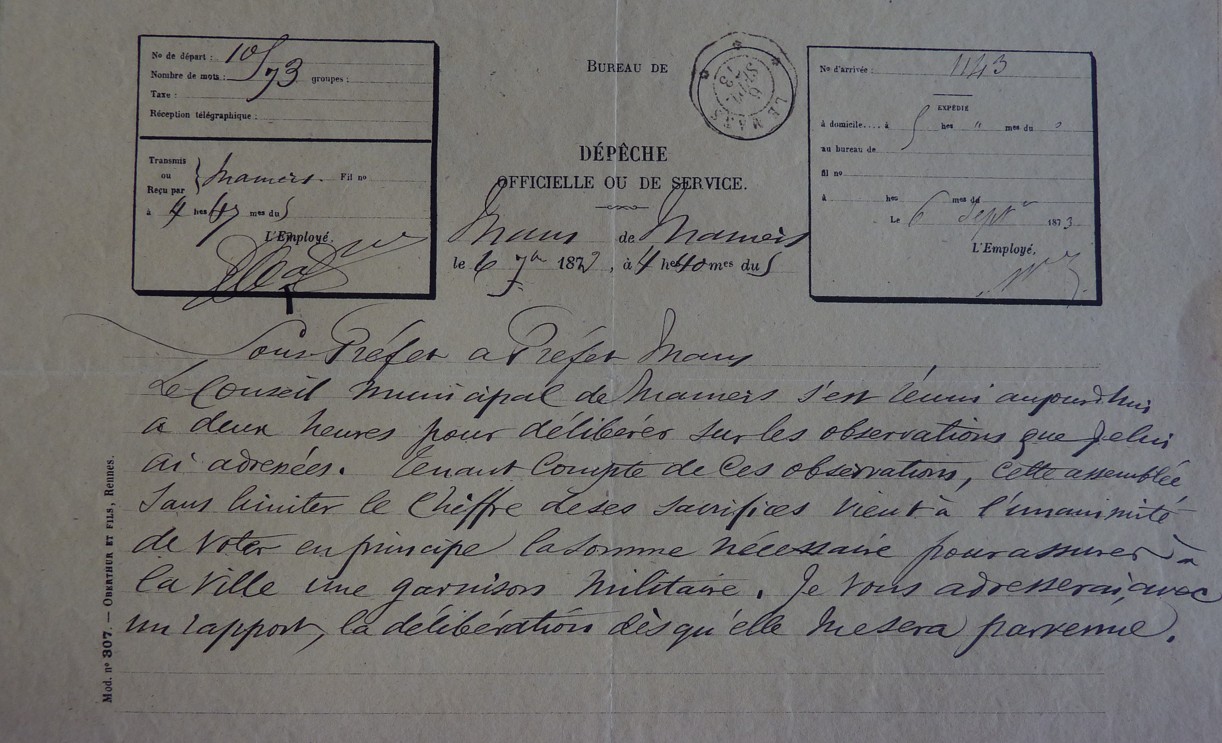 No de départ : 10/73
Nombre de mots : groupes :
Taxe :
Réception télégraphique :
Transmis
ou
Reçu par
Mamers Fil no
à 4 hes 47 mes du S
L'Employé.
BUREAU DE
LE MANS
6
SEPT.
73
DÉPÊCHE
OFFICIELLE OU DE SERVICE.
Mans de Mamers
le 6 7bre 1873, à 4 hes 40 mes du S
No d'arrivée : 1143
EXPÉDIÉ
à domicile.... à 5 hes " mes du
au bureau de
fil no
à hes mes du
Le 6 Septre 1873
L'Employé.
Sous-Préfet a Préfet Mans
Le Conseil municipal de Mamers s'est réuni aujourd'hui
a deux heures pour délibérer sur les observations que je lui
ai adressées. Tenant compte de ces observations, cette assemblée
sans limiter le chiffre de ses sacrifices vient à l'unanimité
de voter en principe la somme nécessaire pour assurer à
la ville une garnison militaire. Je vous adresserai, avec
un rapport, la délibération dès qu'elle me sera parvenue.
Mod. no 307. — OBERTHUR ET FILS, Rennes.